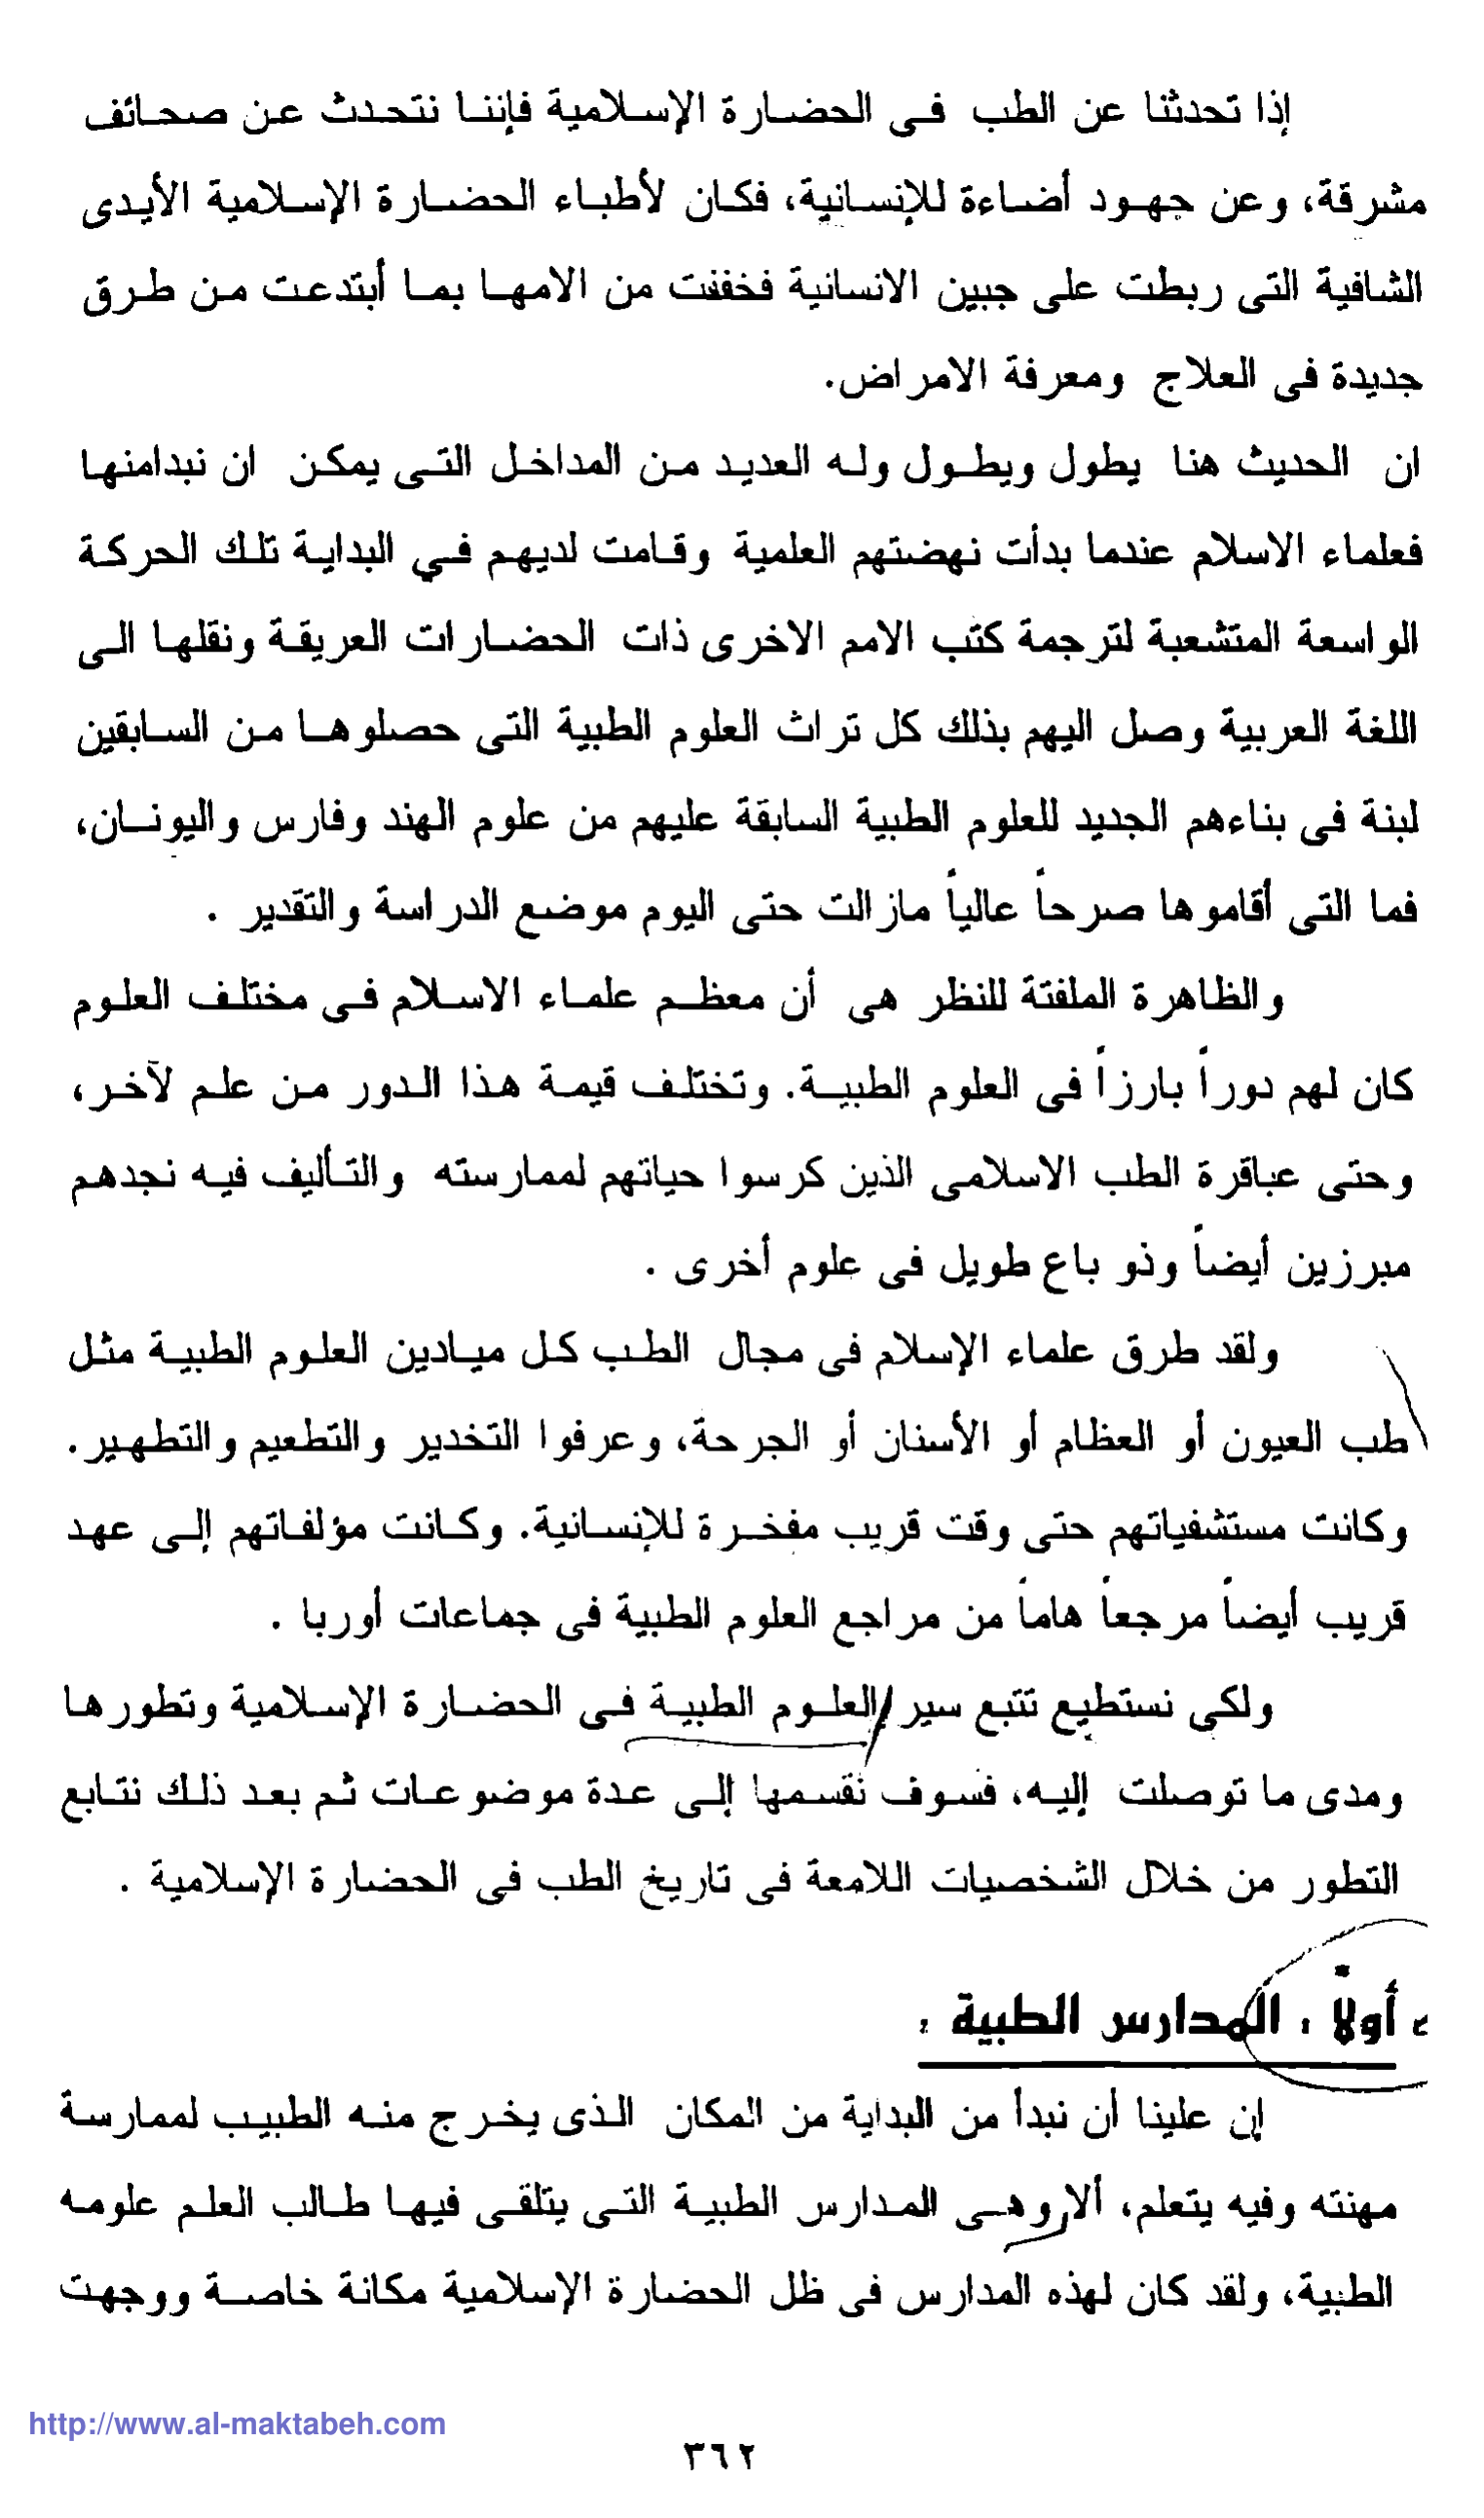 إذا تحدثنا عن الطب فى الحضارة الإسلامية فإننا نتحدث عن صحائف
مشرقة، وعن جهود أضاءة للإنسانية، فكان لأطباء الحضارة الإسلامية الأيدى
الشافية التى ربطت على جبين الانسانية فخففت من الامها بما أبتدعت من طرق
جديدة فى العلاج ومعرفة الامراض.
ان الحديث هنا يطول ويطول وله العديد من المداخل التى يمكن ان نبدامنها
فعلماء الاسلام عندما بدأت نهضتهم العلمية وقامت لديهم في البداية تلك الحركة
الواسعة المتشعبة لترجمة كتب الامم الاخرى ذات الحضارات العريقة ونقلها الى
اللغة العربية وصل اليهم بذلك كل تراث العلوم الطبية التى حصلوها من السابقين
لبنة فى بناءهم الجديد للعلوم الطبية السابقة عليهم من علوم الهند وفارس واليونان،
فما التى أقاموها صرحاً عالياً مازالت حتى اليوم موضع الدراسة والتقدير .
والظاهرة الملفتة للنظر هى أن معظم علماء الاسلام فى مختلف العلوم
كان لهم دوراً بارزاً فى العلوم الطبية. وتختلف قيمة هذا الدور من علم لآخر،
وحتى عباقرة الطب الاسلامى الذين كرسوا حياتهم لممارسته والتأليف فيه نجدهم
مبرزين أيضاً وذو باع طويل فى علوم أخرى .
ولقد طرق علماء الإسلام فى مجال الطب كل ميادين العلوم الطبية مثل
طب العيون أو العظام أو الأسنان أو الجرحة، وعرفوا التخدير والتطعيم والتطهير.
وكانت مستشفياتهم حتى وقت قريب مفخرة للإنسانية. وكانت مؤلفاتهم إلى عهد
قريب أيضاً مرجعاً هاماً من مراجع العلوم الطبية فى جماعات أوربا .
ولكى نستطيع تتبع سير العلوم الطبية فى الحضارة الإسلامية وتطورها
ومدى ما توصلت إليه، فسوف نقسمها إلى عدة موضوعات ثم بعد ذلك نتابع
التطور من خلال الشخصيات اللامعة فى تاريخ الطب فى الحضارة الإسلامية .
أولاً : المدارس الطبية :
إن علينا أن نبدأ من البداية من المكان الذى يخرج منه الطبيب لممارسة
مهنته وفيه يتعلم، ألا وهى المدارس الطبية التى يتلقى فيها طالب العلم علومه
الطبية، ولقد كان لهذه المدارس فى ظل الحضارة الإسلامية مكانة خاصة ووجهت
http://www.al-maktabeh.com
٣٦٢